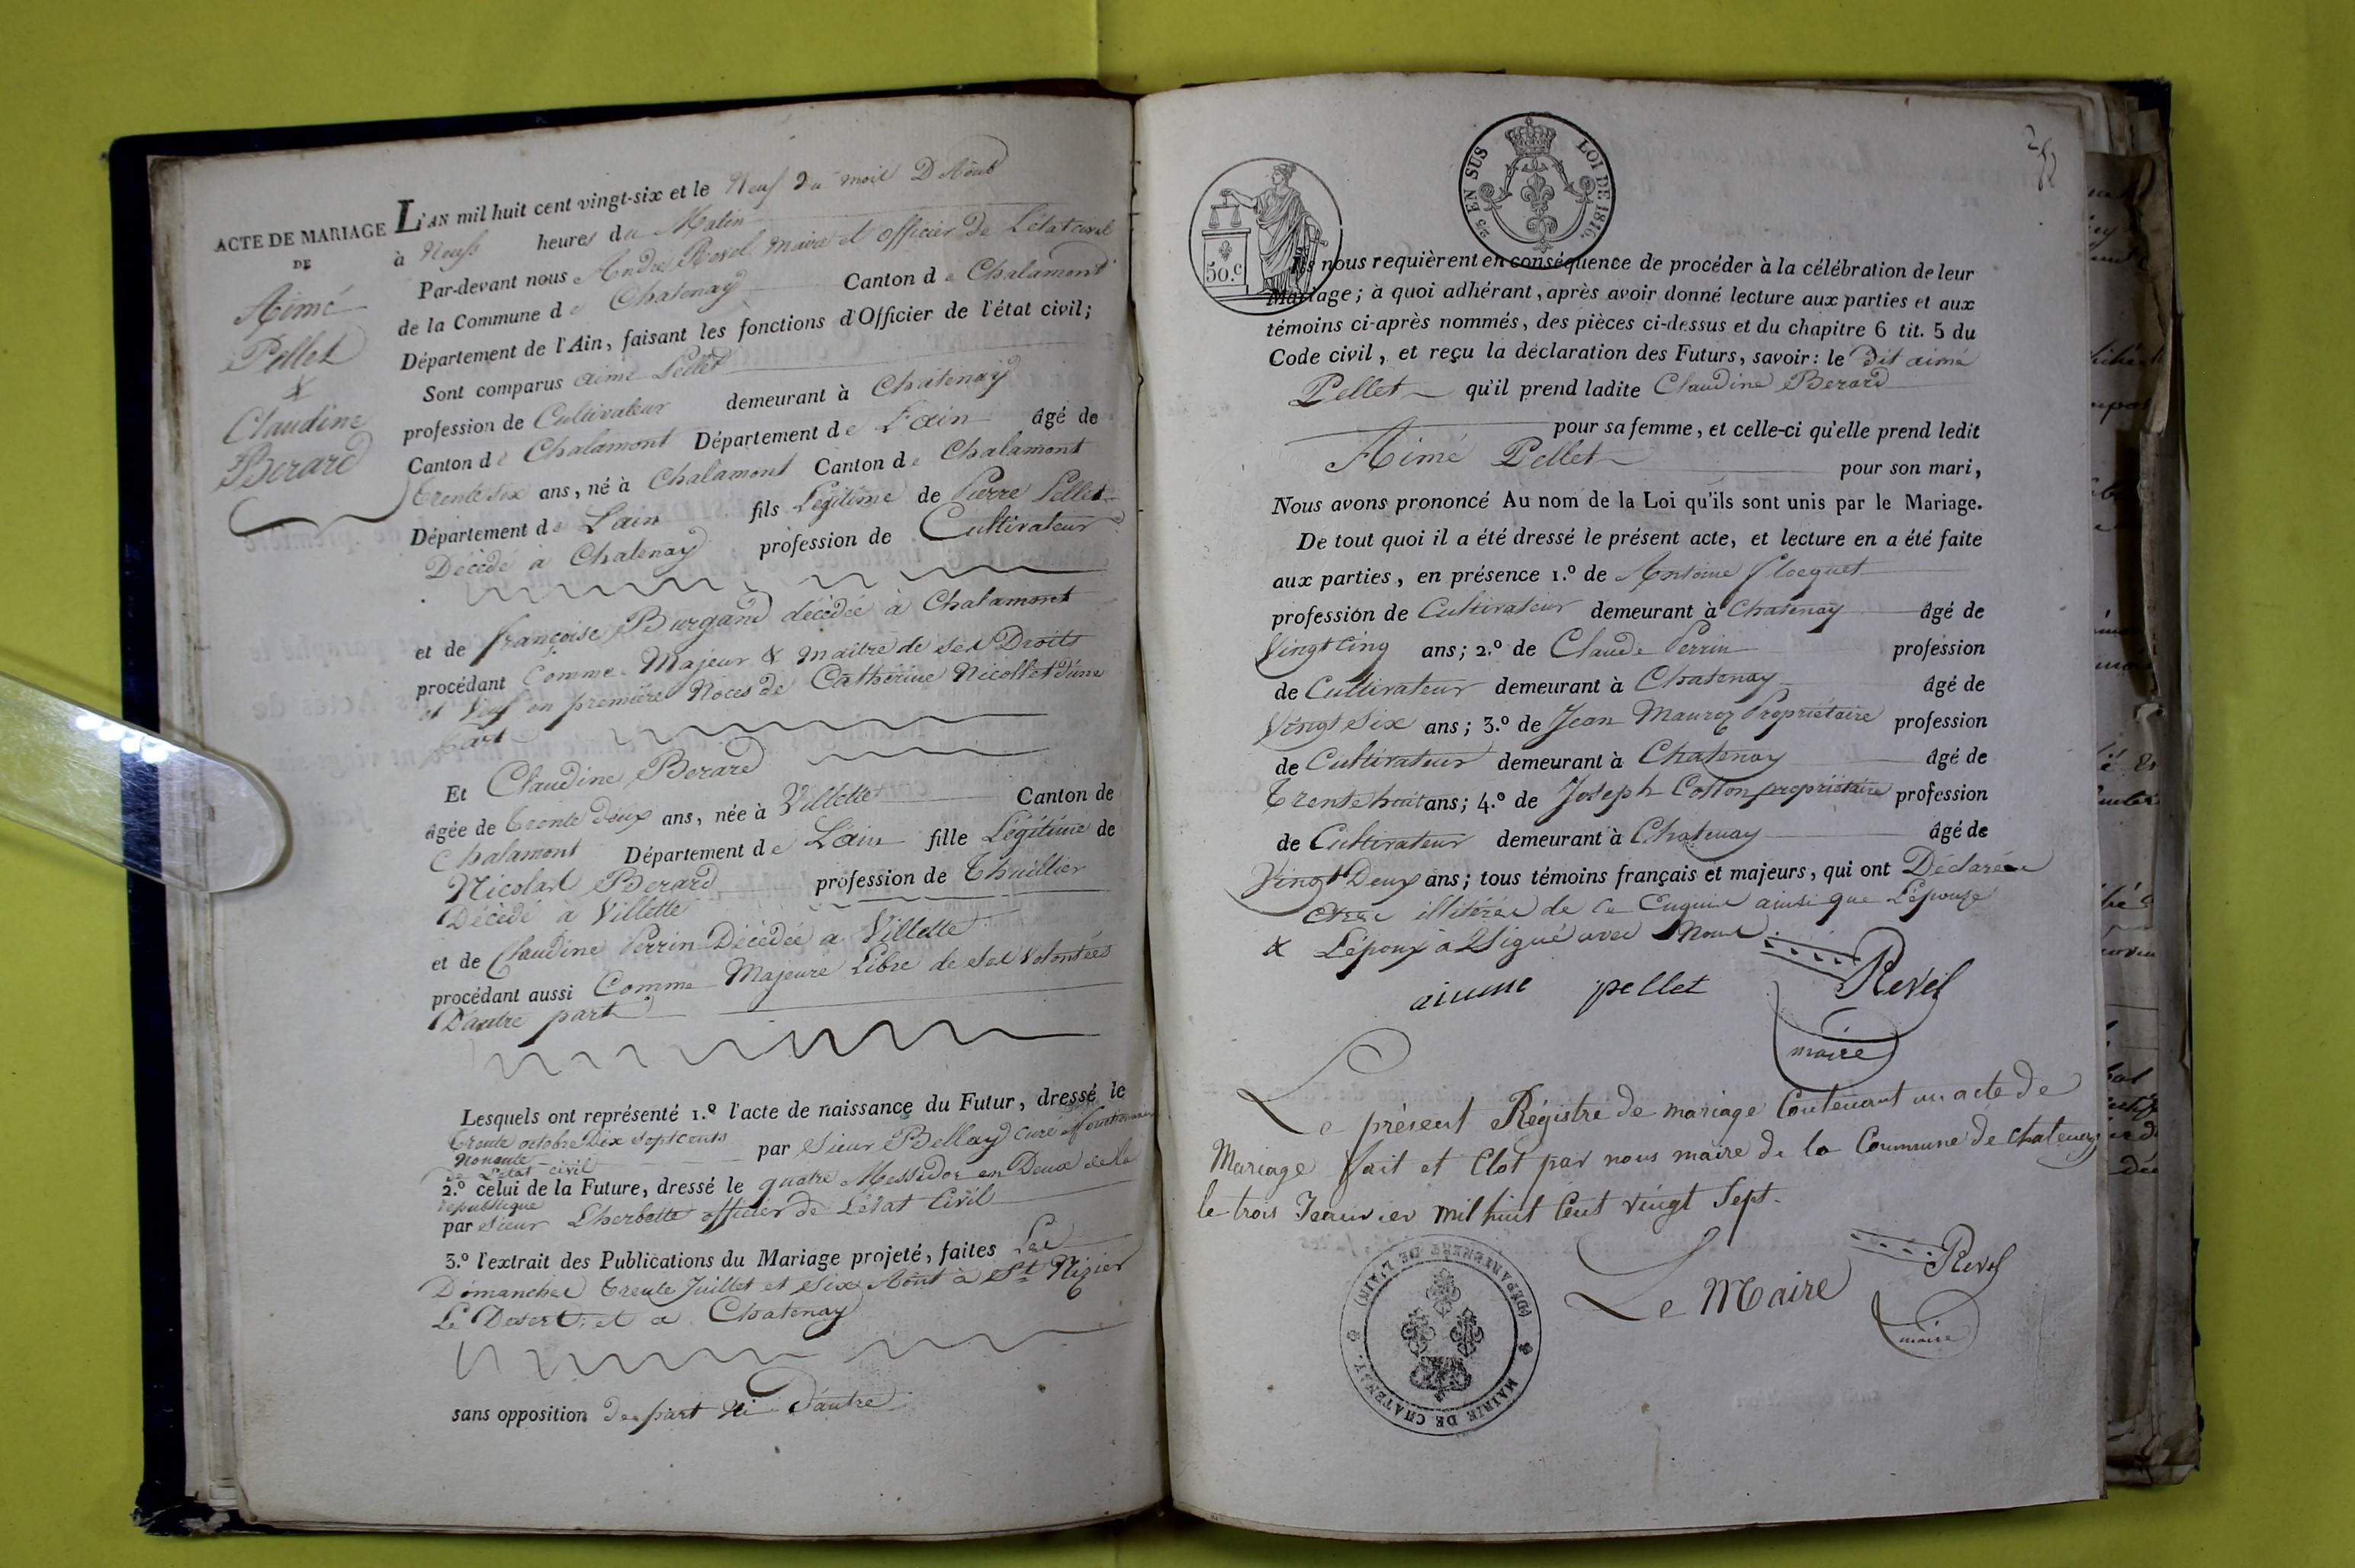 ACTE DE MARIAGE
DE
Aimé
Pellet
&
Claudine
Berard
L'AN mil huit cent vingt-six et le Neuf du mois D'Aout
à Neuf heures du Matin
Par-devant nous André Revel Maire et officier de L'état civil
de la Commune de Chatenay Canton de Chalamont
Département de l'Ain, faisant les fonctions d'Officier de l'état civil;
Sont comparus aimé Pellet
profession de Cultivateur demeurant à Chatenay
Canton de Chalamont Département de L'ain âgé de
trente six ans, né à Chalamont Canton de Chalamont
Département de L'ain fils Légitime de Pierre Pellet
Décédé à Chatenay profession de Cultivateur
et de françoise Burgand décédée à Chalamont
procédant Comme Majeur & maitre de ses Droits
et Veuf en première Noces de Catherine Nicollet d'une
part
Et Claudine Berard
âgée de trente deux ans, née à Villette Canton de
Chalamont Département de L'ain fille Légitime de
Nicolas Berard profession de
Décédé à Villette
et de Claudine Perrin Décédée à Villette
procédant aussi Comme Majeure Libre de ses Volontées
D'autre part
Lesquels ont représenté 1.º l'acte de naissance du Futur, dressé le
trente octobre Dix sept cents
Nonante par Sieur Bellay curé
De L'état civil
2.º celui de la Future, dressé le quatre Messidor en Deux de la
république
par Sieur Lherbette officier de L'état Civil
3.º l'extrait des Publications du Mariage projeté, faites Les
Dimanches trente Juillet et Six Août à St Nizier
Le Desert, et a Chatenay
sans opposition de part ni d'autre
5/5 EN SUS LOI DE 1816.
50.c
Ils nous requièrent en conséquence de procéder à la célébration de leur
Mariage; à quoi adhérant, après avoir donné lecture aux parties et aux
témoins ci-après nommés, des pièces ci-dessus et du chapitre 6 tit. 5 du
Code civil, et reçu la déclaration des Futurs, savoir: le Dit aimé
Pellet qu'il prend ladite Claudine Berard
pour sa femme, et celle-ci qu'elle prend ledit
Aimé Pellet pour son mari,
Nous avons prononcé Au nom de la Loi qu'ils sont unis par le Mariage.
De tout quoi il a été dressé le présent acte, et lecture en a été faite
aux parties, en présence 1.º de Antoine Flocquet
profession de Cultivateur demeurant à Chatenay âgé de
Vingt Cinq ans; 2.º de Claude Perrin profession
de Cultivateur demeurant à Chatenay âgé de
Vingt Six ans; 3.º de Jean Maurez Propriétaire profession
de Cultivateur demeurant à Chatenay âgé de
Trente huit ans; 4.º de Joseph Coston propriétaire profession
de Cultivateur demeurant à Chatenay âgé de
Vingt Deux ans; tous témoins français et majeurs, qui ont Déclarée
illitérée de ce ainsi que L'épouse
& L'époux à Signé avec Nous.
aimme pellet Revel
maire
Le présent Régistre de mariage Contenant un acte de
Mariage fait et Clot par nous maire de la Commune de Chatenay
le trois Janvier mil huit Cent vingt Sept.
Le Maire Revel
maire
MAIRIE DE CHATENAY. (DÉPARTEMENT DE L'AIN)